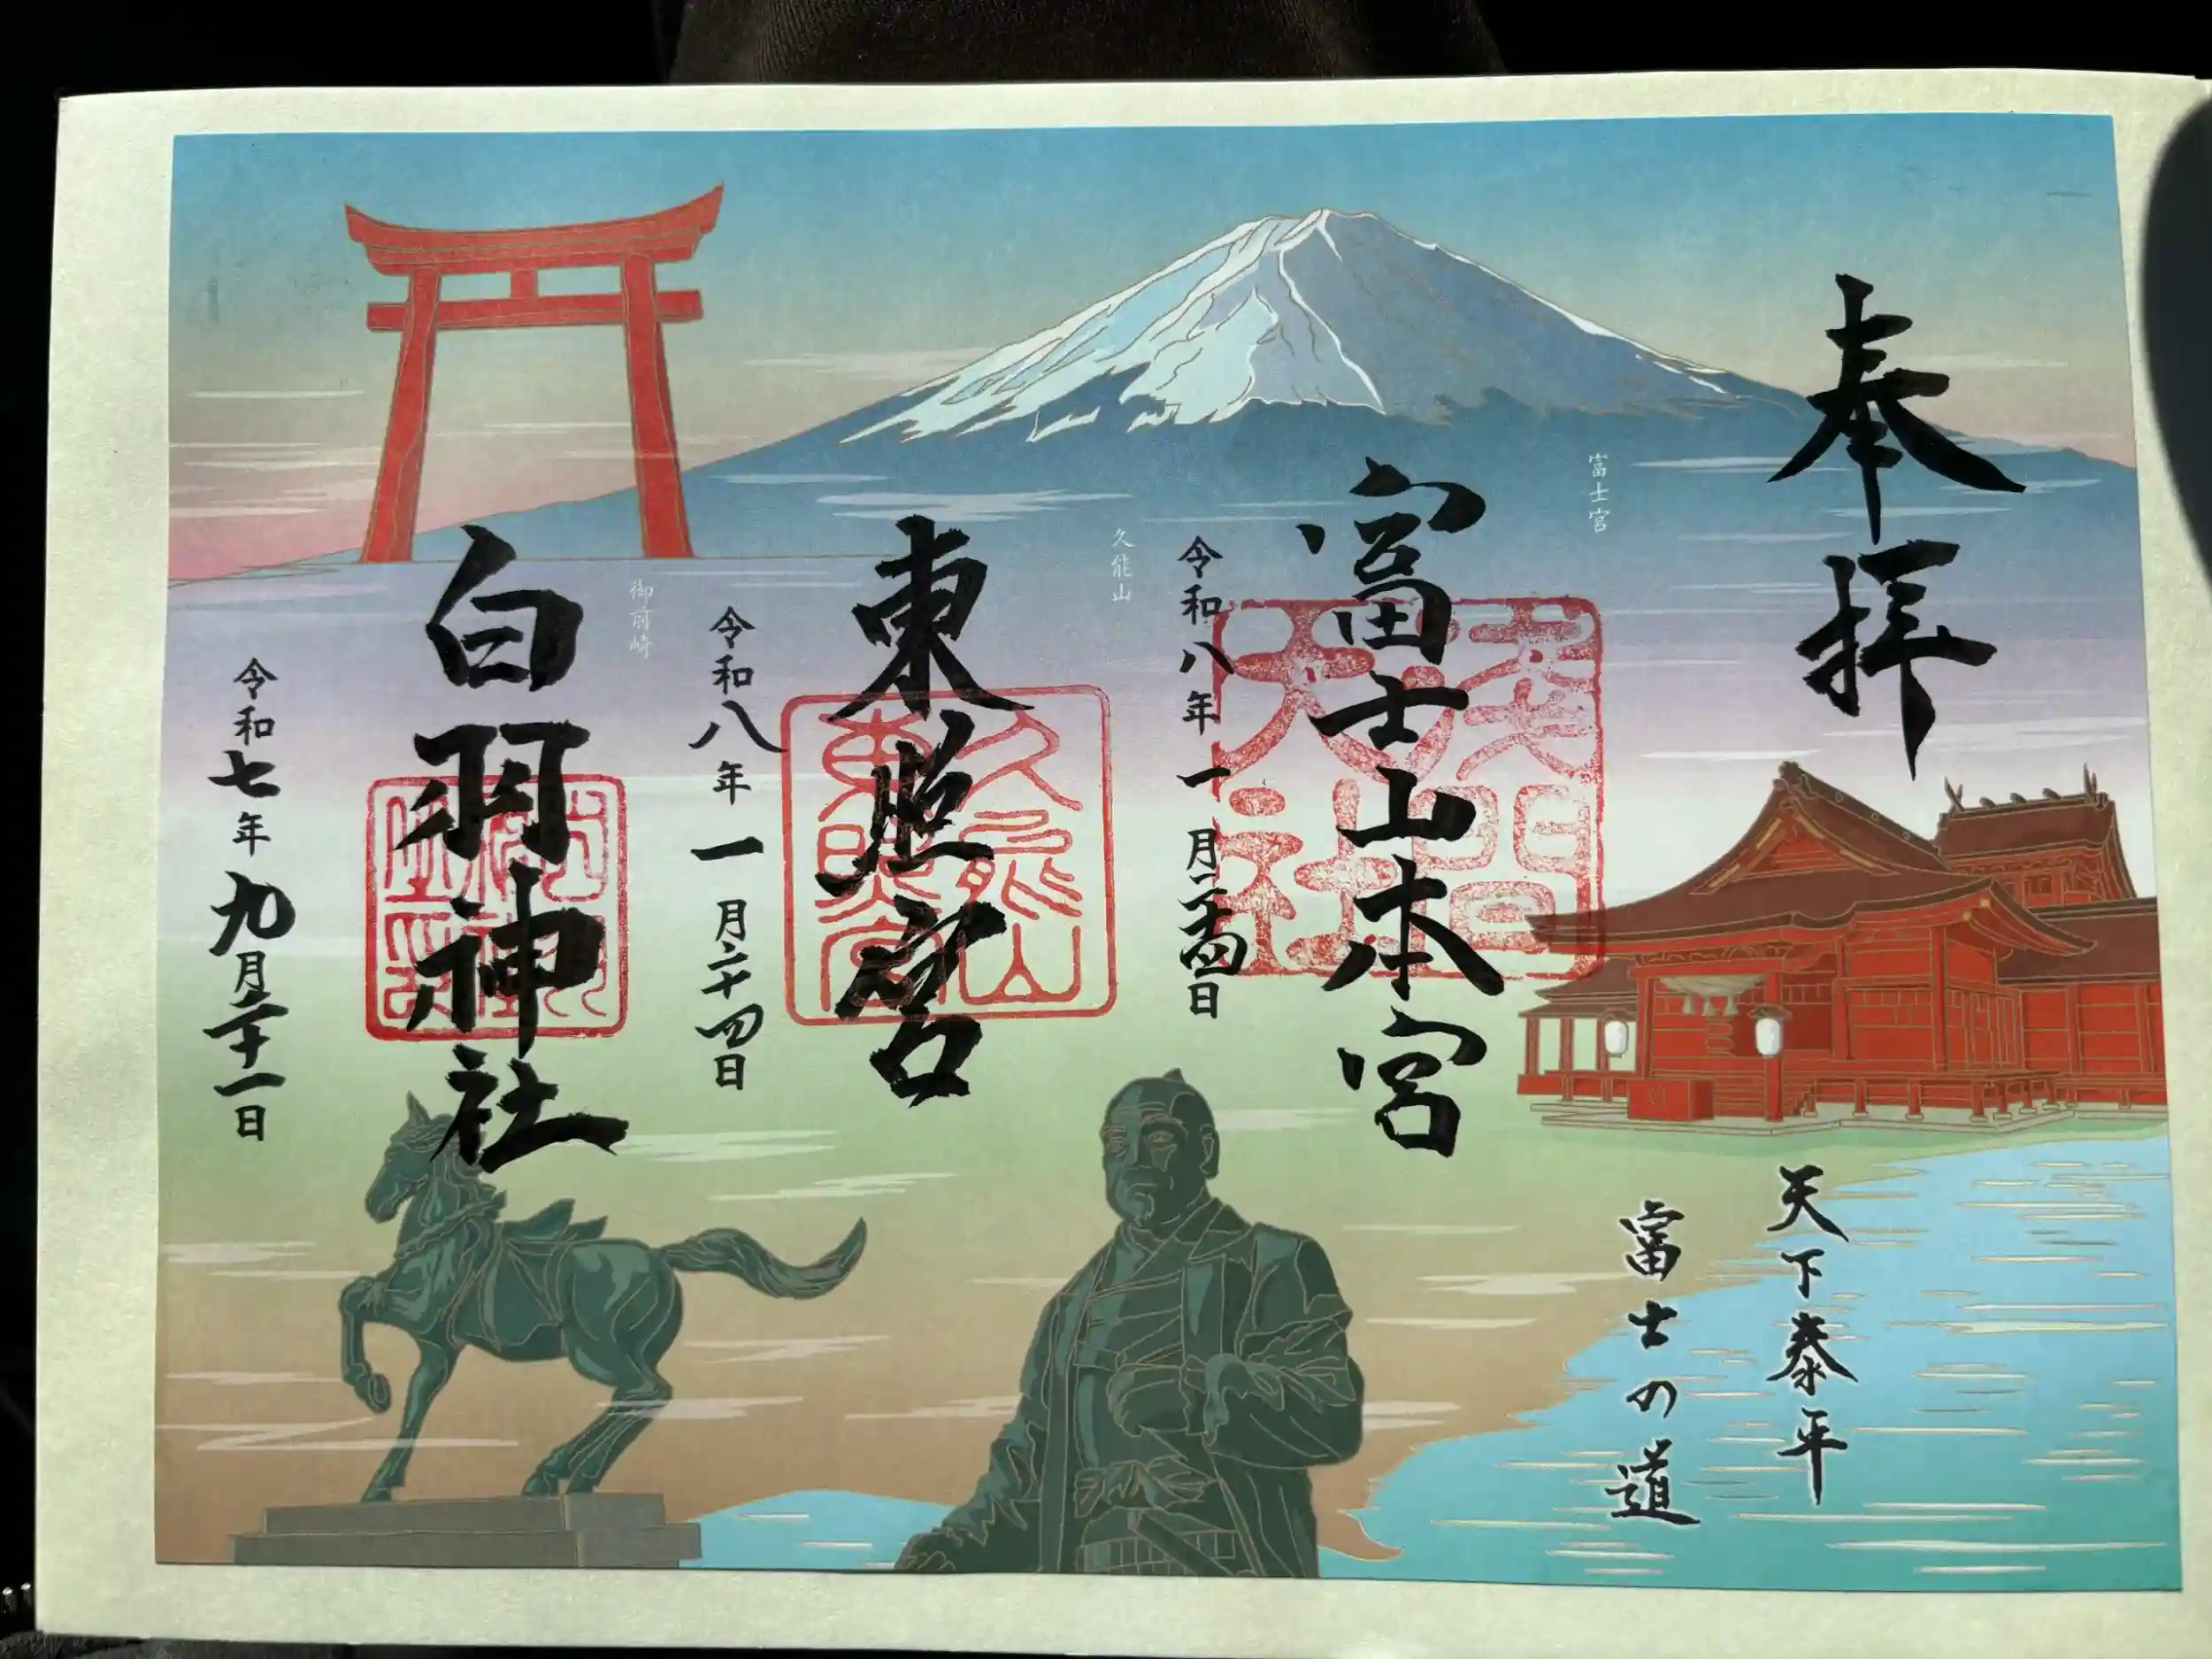 奉拝
天下泰平
富士の道
富士宮
富士山本宮
浅間大社
令和八年一月二十四日
久能山
東照宮
久能山東照宮
令和八年一月二十四日
御前崎
白羽神社
令和七年九月二十一日